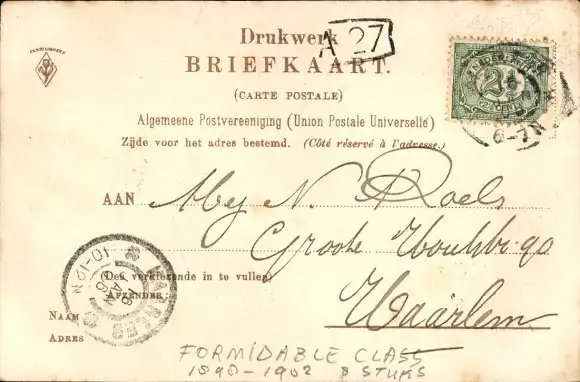 Drukwerk
A 27
BRIEFKAART.
(CARTE POSTALE)
Algemeene Postvereeniging (Union Postale Universelle)
Zijde voor het adres bestemd. (Côté réservé à l'adresse.)
NEDERLAND
2½
CENT
6-7N
AAN Mej N. Roels
Groote Houtstr 90
Haarlem
(Des verkiezende in te vullen)
AFZENDER:
NAAM
ADRES
HAARLEM
10-12N
FORMIDABLE CLASS
1898-1902 8 STUKS